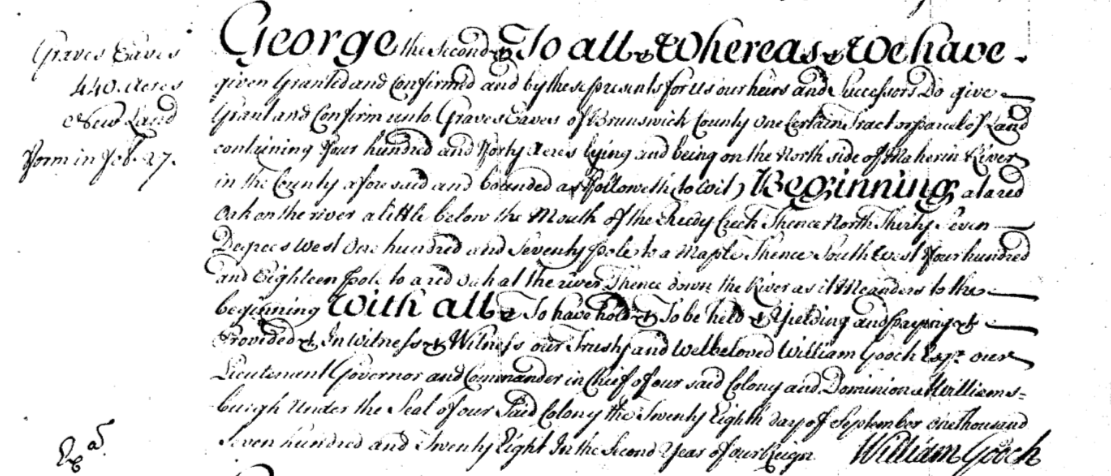 Graves Eaves
440 Acres
New Land
Form in Feb. 27.
George the Second &c To all &c Whereas &c We have
given Granted and Confirmed and by these presents for Us our heirs and Successors Do give
Grant and Confirm unto Graves Eaves of Brunswick County One Certain Tract or parcel of Land
containing Four hundred and Forty Acres lying and being on the North side of Maherin River
in the County aforesaid and bounded as followeth (to wit) Beginning at a red
Oak on the river a little below the Mouth of the Reedy Creek Thence North Thirty Seven
Degrees West One hundred and Seventy pole to a Maple Thence South West Four hundred
and Eighteen pole to a red Oak at the river Thence down the River as it Meanders to the
beginning With all &c To have hold &c To be held &c Yielding and paying &c
Provided &c In Witness &c Witness our Trusty and Welbeloved William Gooch Esqr. our
Lieutenant Governor and Commander in Chief of our said Colony and Dominion at Williams=
burgh Under the Seal of our Said Colony the Twenty Eighth day of September One thousand
Seven hundred and Twenty Eight In the Second Year of our Reign William Gooch
Exd.